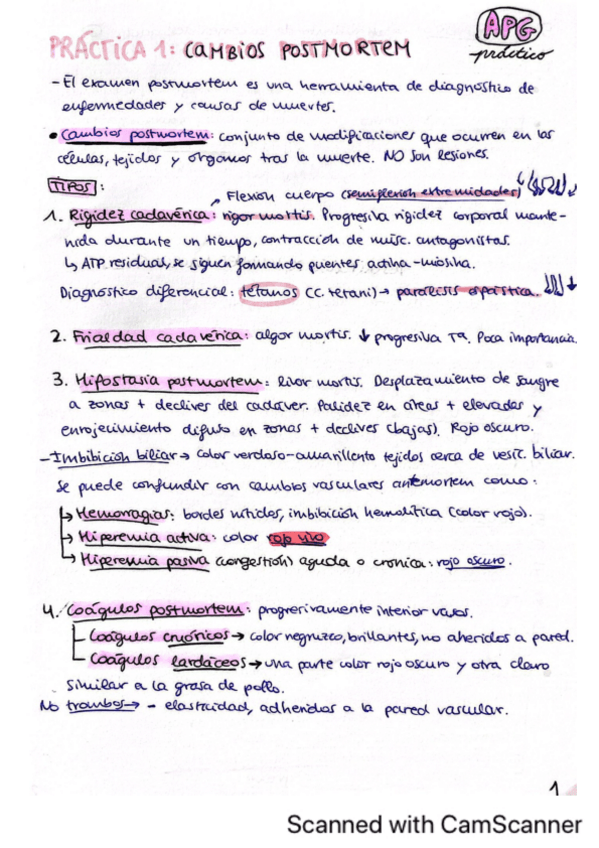 PRÁCTICA 1: CAMBIOS POSTMORTEM
APG
práctico
- El examen postmortem es una herramienta de diagnóstico de
enfermedades y causas de muertes.
• Cambios postmortem: conjunto de modificaciones que ocurren en las
células, tejidos y órganos tras la muerte. NO son lesiones.
TIPOS:
Flexión cuerpo (semiflexión extremidades)
1. Rigidez cadavérica: rigor mortis. Progresiva rigidez corporal mante-
nida durante un tiempo, contracción de músc. antagonistas.
↳ ATP residual, se siguen formando puentes actina-miosina.
Diagnóstico diferencial: tétanos (C. tetani) → parálisis espástica.
2. Frialdad cadavérica: algor mortis. ↓ progresiva Tª. Poca importancia.
3. Hipostasia postmortem: livor mortis. Desplazamiento de sangre
a zonas + declives del cadáver. Palidez en áreas + elevadas y
enrojecimiento difuso en zonas + declives (bajas). Rojo oscuro.
- Imbibición biliar → color verdoso-amarillento tejidos cerca de vesíc. biliar.
Se puede confundir con cambios vasculares antemortem como:
↳ Hemorragias: bordes nítidos, imbibición hemolítica (color rojo).
↳ Hiperemia activa: color rojo vivo
↳ Hiperemia pasiva (congestión) aguda o crónica: rojo oscuro.
4. Coágulos postmortem: progresivamente interior vasos.
Coágulos cruóricos → color negruzco, brillantes, no adheridos a pared.
Coágulos lardáceos → una parte color rojo oscuro y otra claro
similar a la grasa de pollo.
No trombos → - elasticidad, adheridos a la pared vascular.
1
Scanned with CamScanner